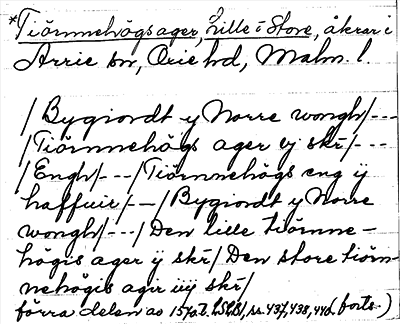 *Tiörnnehögsager, Lille o Store, åkrar i
Arrie sn, Oxie hd, Malm. l.
/Bygiordt y Norre wongh/---
/Tiörnnehögs ager ij skr̄/---
/Engh/---/Tiörnnehögs eng ÿ
haffuir/--/Bygiordt y Norre
wongh/---/Den lille tiörnne-
högis ager ÿ skr̄/Den store tiörn-
nehögis agir iiij skr̄/
förra delen av 1570 t. LSLB, ss. 437, 438, 440 (forts.)